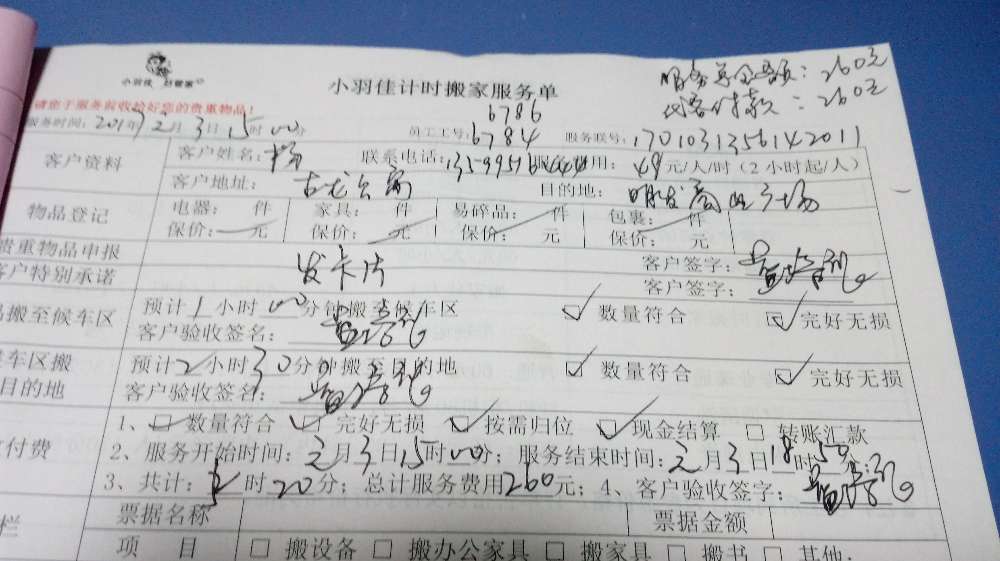 服务总金额：260元
代客付款：260元
小羽佳 好管家
小羽佳计时搬家服务单
请您于服务前收拾好您的贵重物品！
6786
服务时间：201 年2月3日15时00分 员工工号：6784 服务联号：1701031356142011
客户资料 客户姓名：杨 联系电话： 费用：49元/人/时（2小时起/人）
客户地址：古龙公寓 目的地：明发商业广场
物品登记 电器： 件 家具： 件 易碎品： 件 包裹： 件
保价： 元 保价： 元 保价： 元 保价： 元
贵重物品申报 发卡片 客户签字：
客户特别承诺 客户签字：
搬至候车区 预计1小时00分钟搬至候车区 ☑ 数量符合 ☑ 完好无损
客户验收签名：
车区搬 预计2小时30分钟搬至目的地 ☑ 数量符合 ☑ 完好无损
目的地 客户验收签名：
1、☑ 数量符合 ☑ 完好无损 ☑ 按需归位 ☑ 现金结算 □ 转账汇款
付费 2、服务开始时间：2月3日15时00分；服务结束时间：2月3日18时50
3、共计： 时20分；总计服务费用260元；4、客户验收签字：
栏 票据名称 票据金额
项 目 □ 搬设备 □ 搬办公家具 □ 搬家具 □ 搬书 □ 其他：